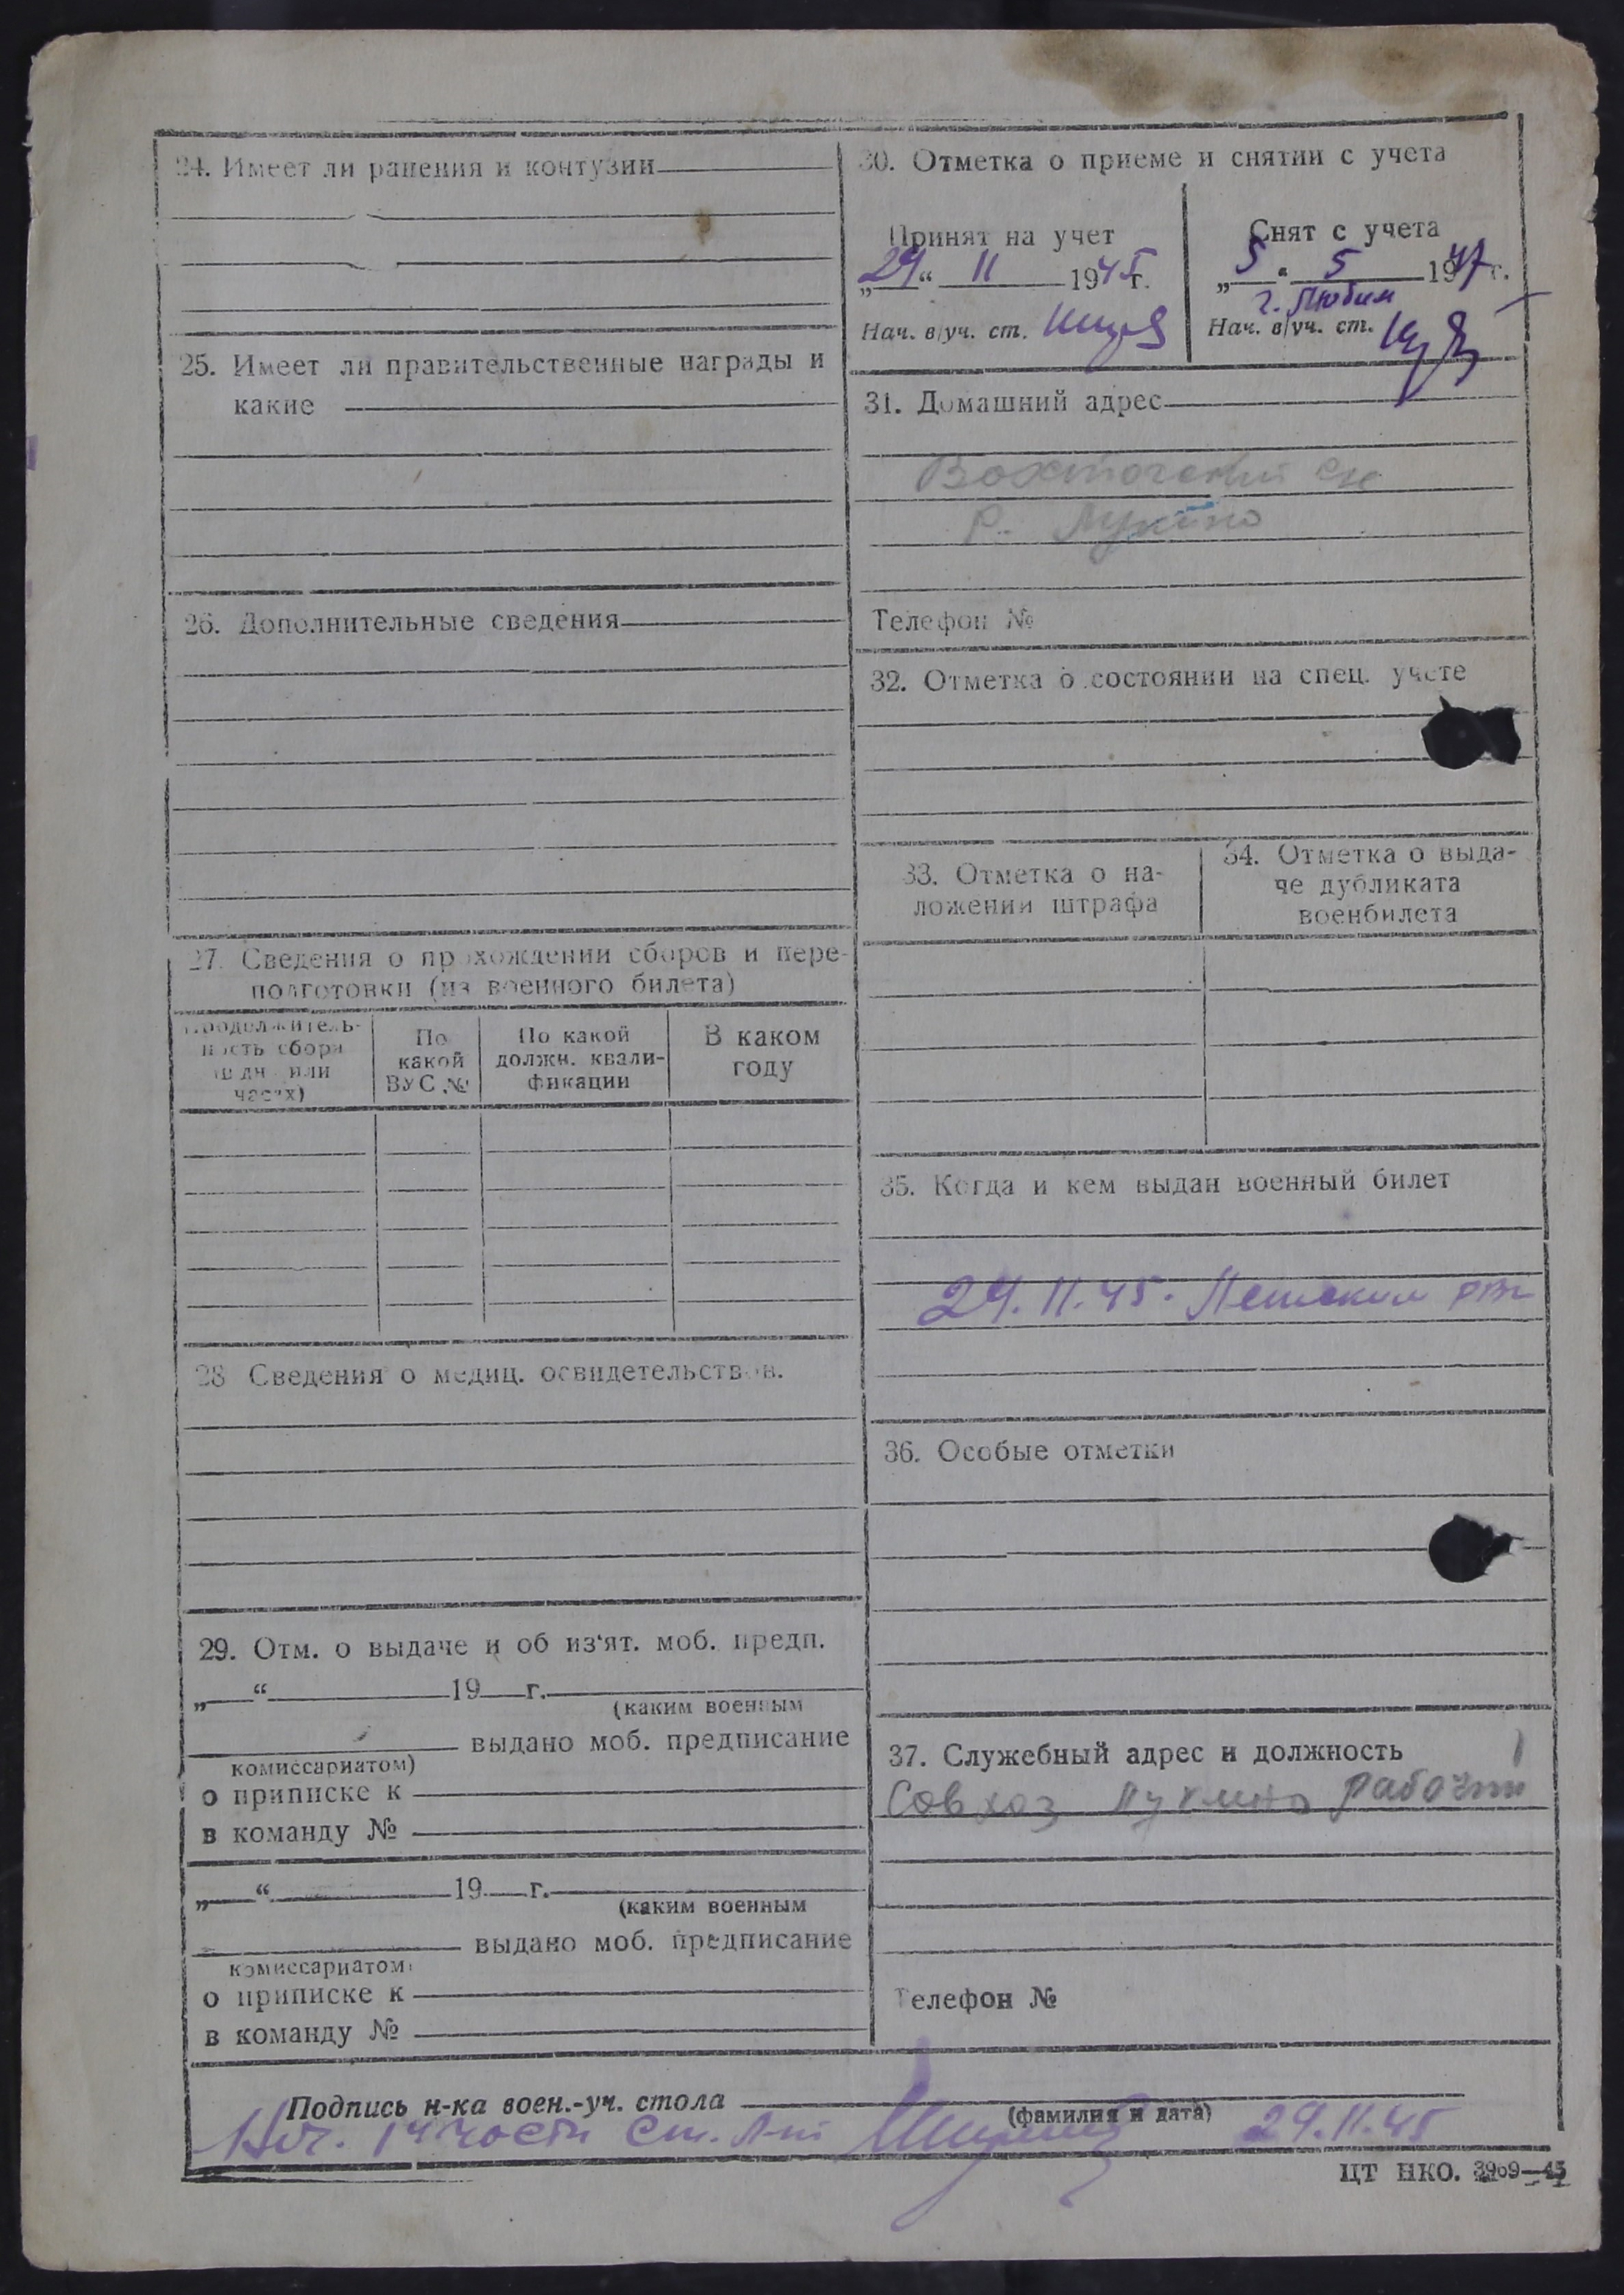 24. Имеет ли ранения и контузии
25. Имеет ли правительственные награды и
какие
26. Дополнительные сведения
27. Сведения о прохождении сборов и пере-
подготовки (из военного билета)
Продолжитель-
ность сбора
(в дн. или
часах)
По
какой
ВУС №
По какой
должн. квали-
фикации
В каком
году
28 Сведения о медиц. освидетельствов.
29. Отм. о выдаче и об из‘ят. моб. предп.
„ “ 19 г.
(каким военным
выдано моб. предписание
комиссариатом)
о приписке к
в команду №
„ “ 19 г.
(каким военным
выдано моб. предписание
комиссариатом)
о приписке к
в команду №
30. Отметка о приеме и снятии с учета
Принят на учет
„29“ 11 1945г.
Нач. в/уч. ст.
Снят с учета
„5“ 5 1947г.
г. Любим
Нач. в/уч. ст.
31. Домашний адрес
Лукино
Телефон №
32. Отметка о состоянии на спец. учете
33. Отметка о на-
ложении штрафа
34. Отметка о выда-
че дубликата
военбилета
35. Когда и кем выдан военный билет
29.11.45.
36. Особые отметки
37. Служебный адрес и должность
Совхоз Лукино рабочий
Телефон №
Подпись н-ка воен.-уч. стола
(фамилия и дата)
Нач. 1 части Ст. л-т 29.11.45
ЦТ НКО. 3969—45